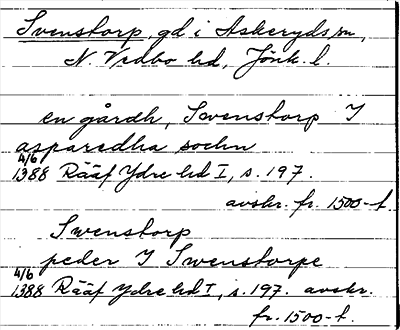 Svenstorp, gd i Askeryds sn,
N. Vedbo hd, Jönk. l.
en gårdh, Swenstorp J
asparedha sochn
4/6
1388 Rääf Ydre hd I, s. 197.
avskr. fr. 1500-t.
Swenstorp
peder J Swenstorpe
4/6
1388 Rääf Ydre hd I, s. 197. avskr.
fr. 1500-t.